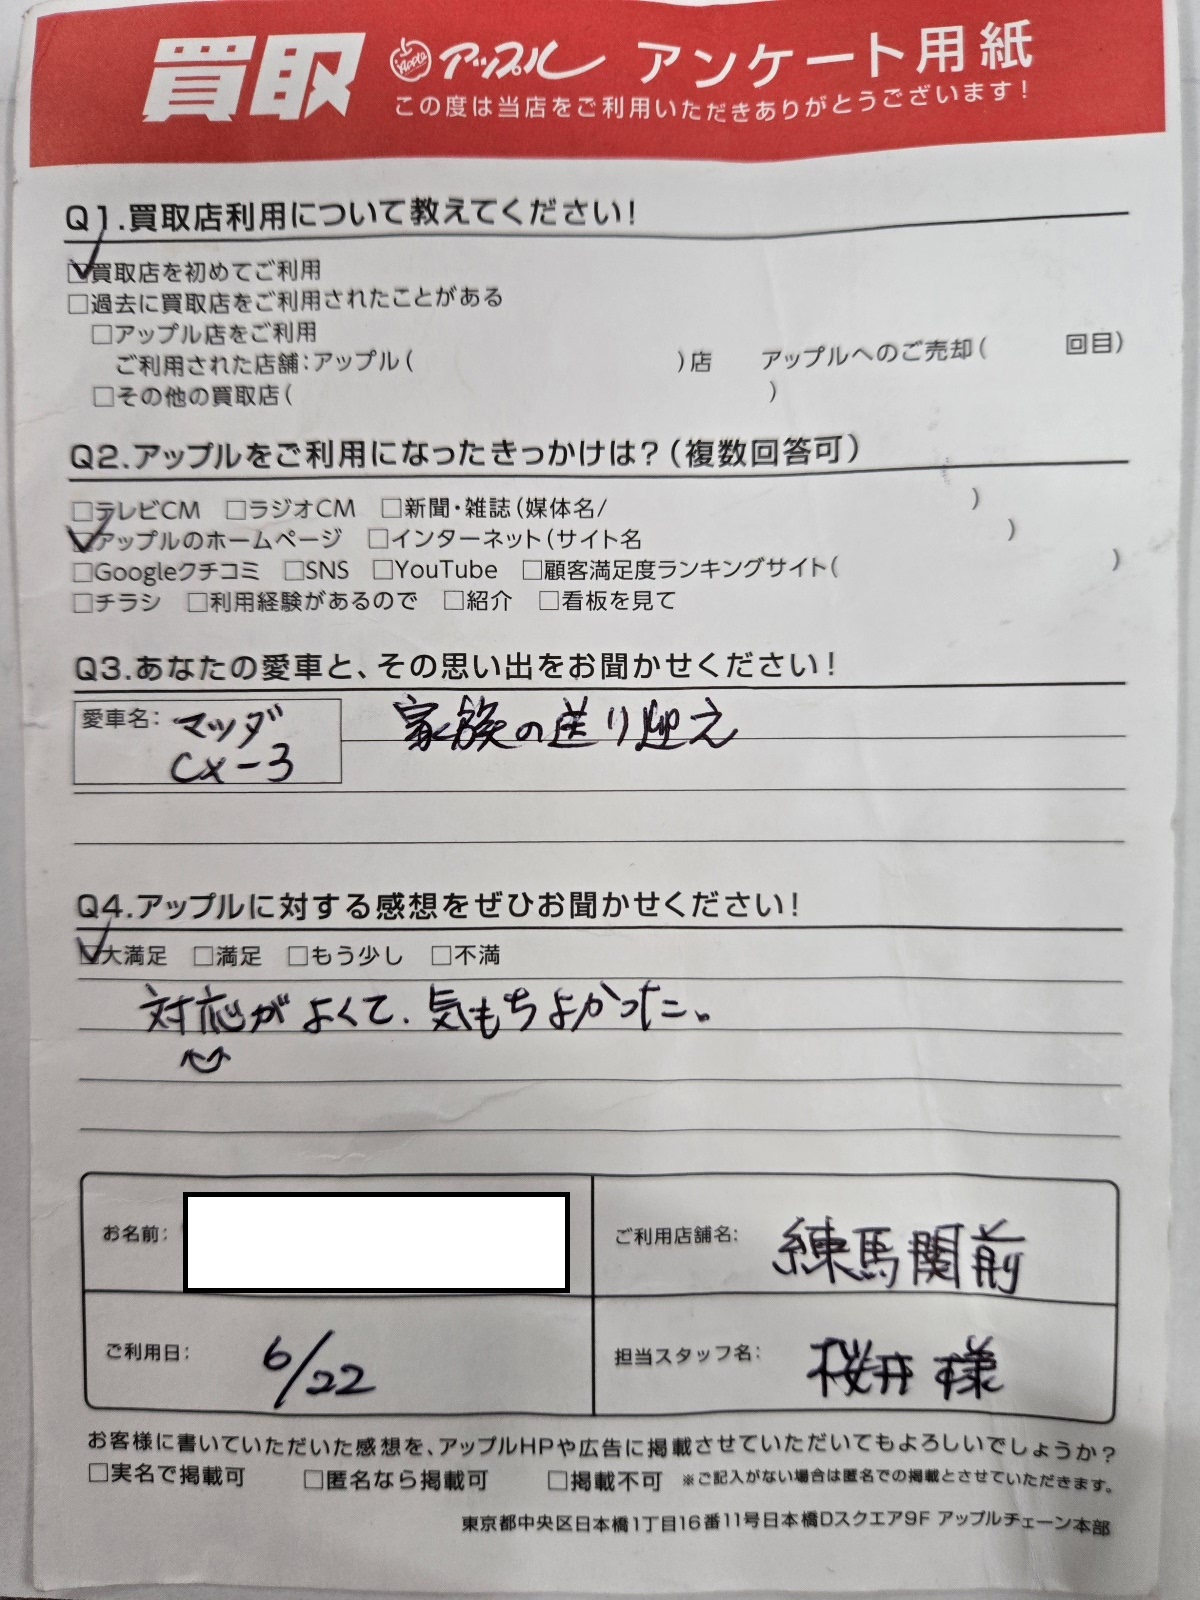 買取 Apple アップル アンケート用紙
この度は当店をご利用いただきありがとうございます!
Q1.買取店利用について教えてください!
☑買取店を初めてご利用
□過去に買取店をご利用されたことがある
□アップル店をご利用
ご利用された店舗:アップル( )店 アップルへのご売却( 回目)
□その他の買取店( )
Q2.アップルをご利用になったきっかけは?(複数回答可)
□テレビCM □ラジオCM □新聞・雑誌(媒体名/ )
☑アップルのホームページ □インターネット(サイト名 )
□Googleクチコミ □SNS □YouTube □顧客満足度ランキングサイト( )
□チラシ □利用経験があるので □紹介 □看板を見て
Q3.あなたの愛車と、その思い出をお聞かせください!
愛車名: マツダ 家族の送り迎え
CX-3
Q4.アップルに対する感想をぜひお聞かせください!
☑大満足 □満足 □もう少し □不満
対応がよくて、気もちよかった。
お名前: ご利用店舗名: 練馬関前
ご利用日: 6/22 担当スタッフ名: 桜井 様
お客様に書いていただいた感想を、アップルHPや広告に掲載させていただいてもよろしいでしょうか?
□実名で掲載可 □匿名なら掲載可 □掲載不可 ※ご記入がない場合は匿名での掲載とさせていただきます。
東京都中央区日本橋1丁目16番11号日本橋Dスクエア9F アップルチェーン本部